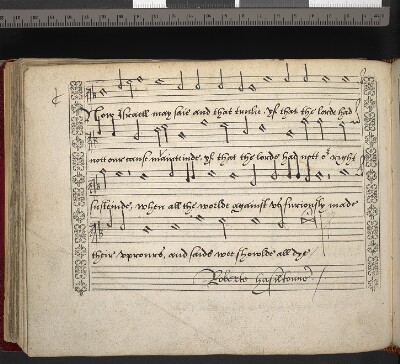 Now Israell may saie and that trulie. yf that the lorde had
nott our cause mainteinde, yf that the lorde had nott or right
susteinde, when all the worlde against us furiously made
their uproures, and saide wee showlde all dye
Roberte hasiltonne